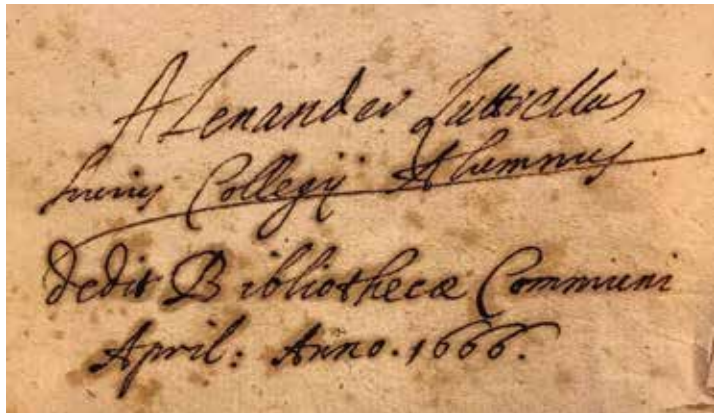 Alexander Luttrellus
huius Collegij Alumnus
dedit Bibliothecæ Communi
April: Anno. 1666.